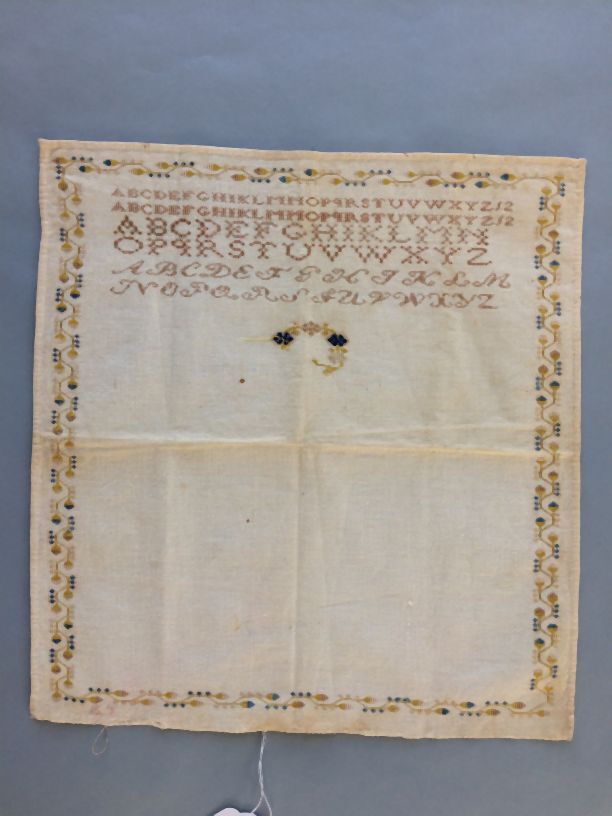 ABCDEFGHIKLMNOPQRSTUVWXYZ12
ABCDEFGHIKLMNOPQRSTUVWXYZ12
ABCDEFGHIKLMN
OPQRSTUVWXYZ
ABCDEFGHIKLM
NOPQRSTUVWXYZ